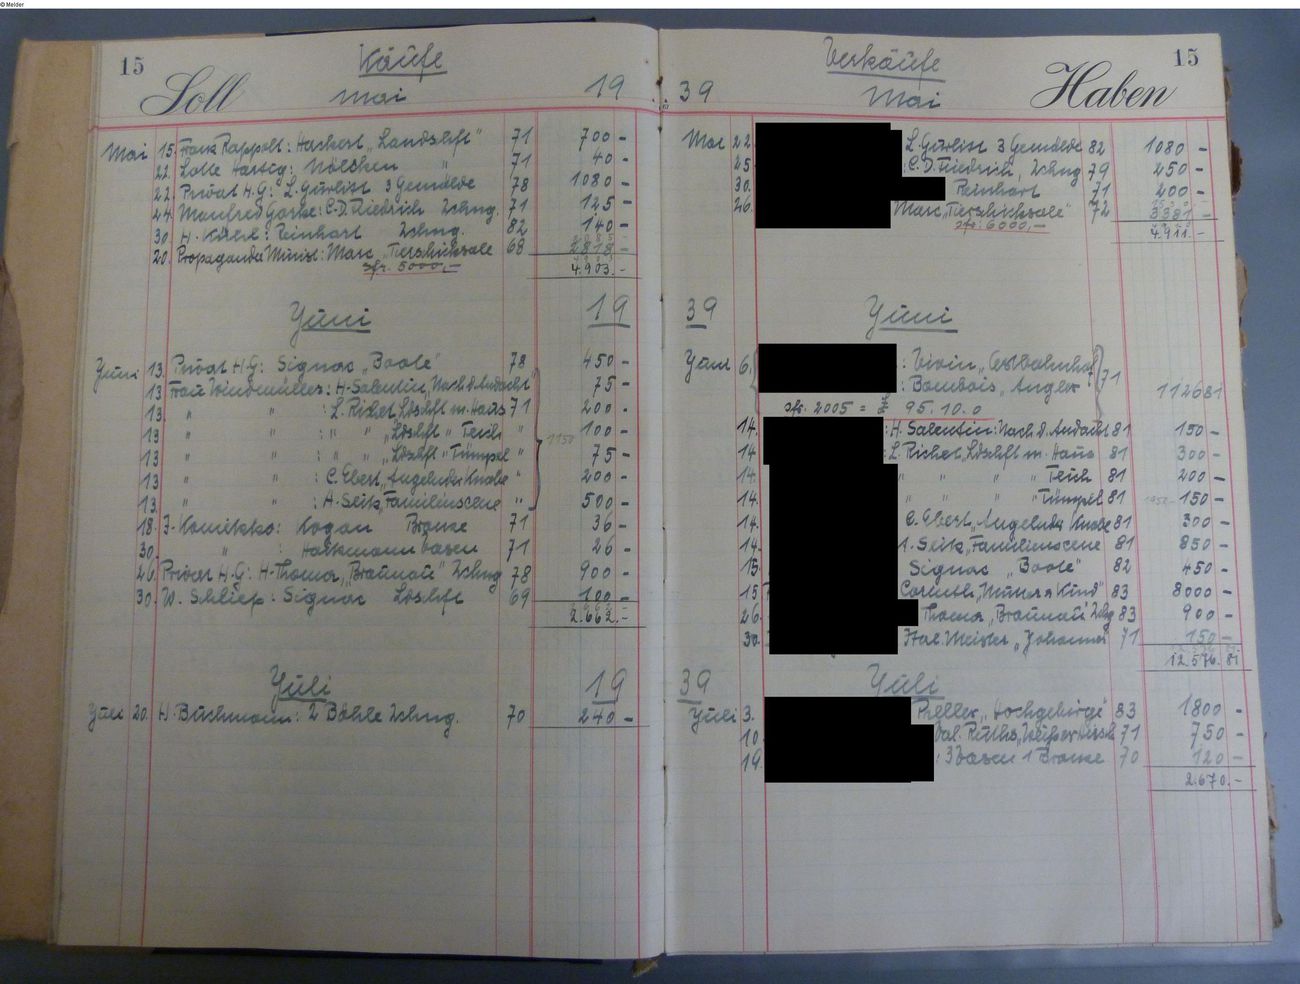 © Melder
15
Käufe
Soll
Mai
19
Mai 15. Frank Rappolt: Hackert „Landschft" 71 700 -
22. Lotte Hartig: Nölcken " 71 40 -
22. Privat H.G: L. Gurlitt 3 Gemälde 78 1080 -
24. Manfred Gorke: C.D. Friedrich Zchng. 71 125 -
30. H. : Reinhart Zchng. 82 140 -
20. Propaganda Minist: Marc „Tierschicksale 68 2818 -
sfr. 5000,-
4.903.-
Juni 19
Juni 13. Privat H-G: Signac „Boote" 78 450 -
13. Frau Windmüller: H. Salentin „Nach d. Andacht" 75 -
13. " " : L. Richet Ldschft m. Haus 71 200 -
13 " " : " " „Ldschft" Teich " 100 -
13 " " : " " „Ldschft" Tümpel " 75 -
13. " " : C. Ebert „Angelnder Knabe " 200 -
13. " " : A. Seitz „Familienscene " 500 -
1150
18. J. Komikko: Kogan Bronze 71 36 -
30. " : Vasen 71 26 -
26. Privat H-G: H. Thoma „Braunau" Zchng 78 900 -
30. W. Schliep: Signac Ldschft 69 100 -
2.662.-
Juli 19
Juli 20. H. Buchmann: 2 Böhle Zchng. 70 240 -
15
Verkäufe
Haben
39
Mai
Mai 22. L. Gurlitt 3 Gemälde 82 1080 -
25. C.D. Friedrich, Zchng 79 250 -
30. Reinhart 71 200 -
26. Marc „Tierschicksale" 72 3381 -
sfr. 6000,-
4.911.-
39 Juni
Juni 6. : Vivin, „Ostbahnhof
: Bombois „Angler 71 1126 81
sfr. 2005 = £ 95. 10. 0
14. : H. Salentin: Nach d. Andacht 81 150 -
14 : L. Richet „Ldschft m. Haus 81 300 -
14. " " " Teich 81 200 -
14. " " " "Tümpel 81 150 -
14. C. Ebert „Angelnder Knabe 81 300 -
14. A. Seitz „Familienscene 81 850 -
15. Signac „Boote" 82 450 -
15 Corinth „Mutter u Kind" 83 8000 -
26. Thoma „Braunau" Zchng 83 900 -
30. Ital. Meister „Johannes" 71 150 -
12.576.81
39 Juli
Juli 3. Preller „Hochgebirge" 83 1800 -
10. Val. Ruths „Weißer Hirsch 71 750 -
19. : 3 Vasen 1 Bronze 70 120 -
2.670.-